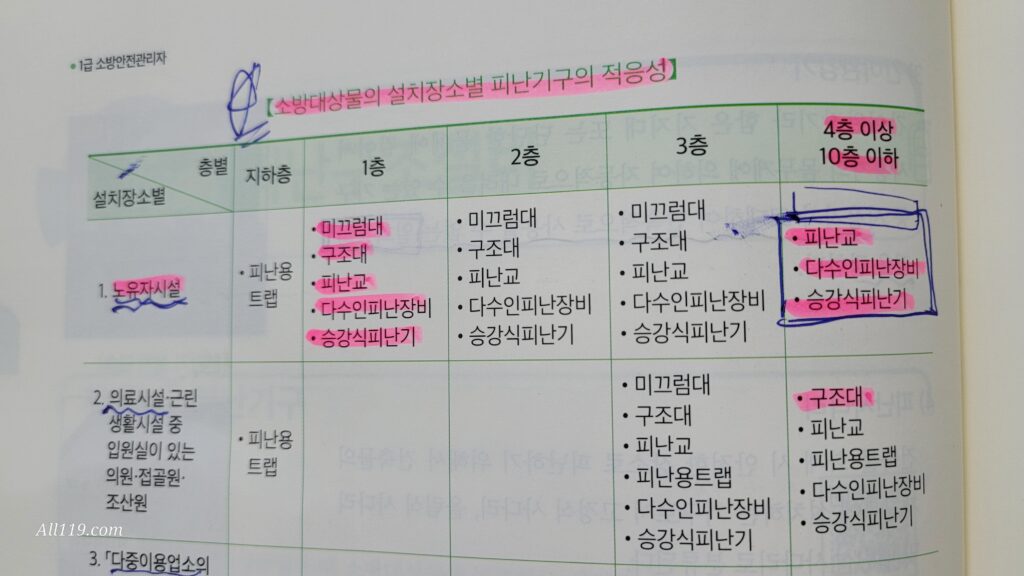 • 1급 소방안전관리자
【소방대상물의 설치장소별 피난기구의 적응성】
층별
설치장소별
지하층
1층
2층
3층
4층 이상
10층 이하
1. 노유자시설
• 피난용
트랩
• 미끄럼대
• 구조대
• 피난교
• 다수인피난장비
• 승강식피난기
• 미끄럼대
• 구조대
• 피난교
• 다수인피난장비
• 승강식피난기
• 미끄럼대
• 구조대
• 피난교
• 다수인피난장비
• 승강식피난기
• 피난교
• 다수인피난장비
• 승강식피난기
2. 의료시설·근린
생활시설 중
입원실이 있는
의원·접골원·
조산원
• 피난용
트랩
• 미끄럼대
• 구조대
• 피난교
• 피난용트랩
• 다수인피난장비
• 승강식피난기
• 구조대
• 피난교
• 피난용트랩
• 다수인피난장비
• 승강식피난기
3. 「다중이용업소의
All119.com